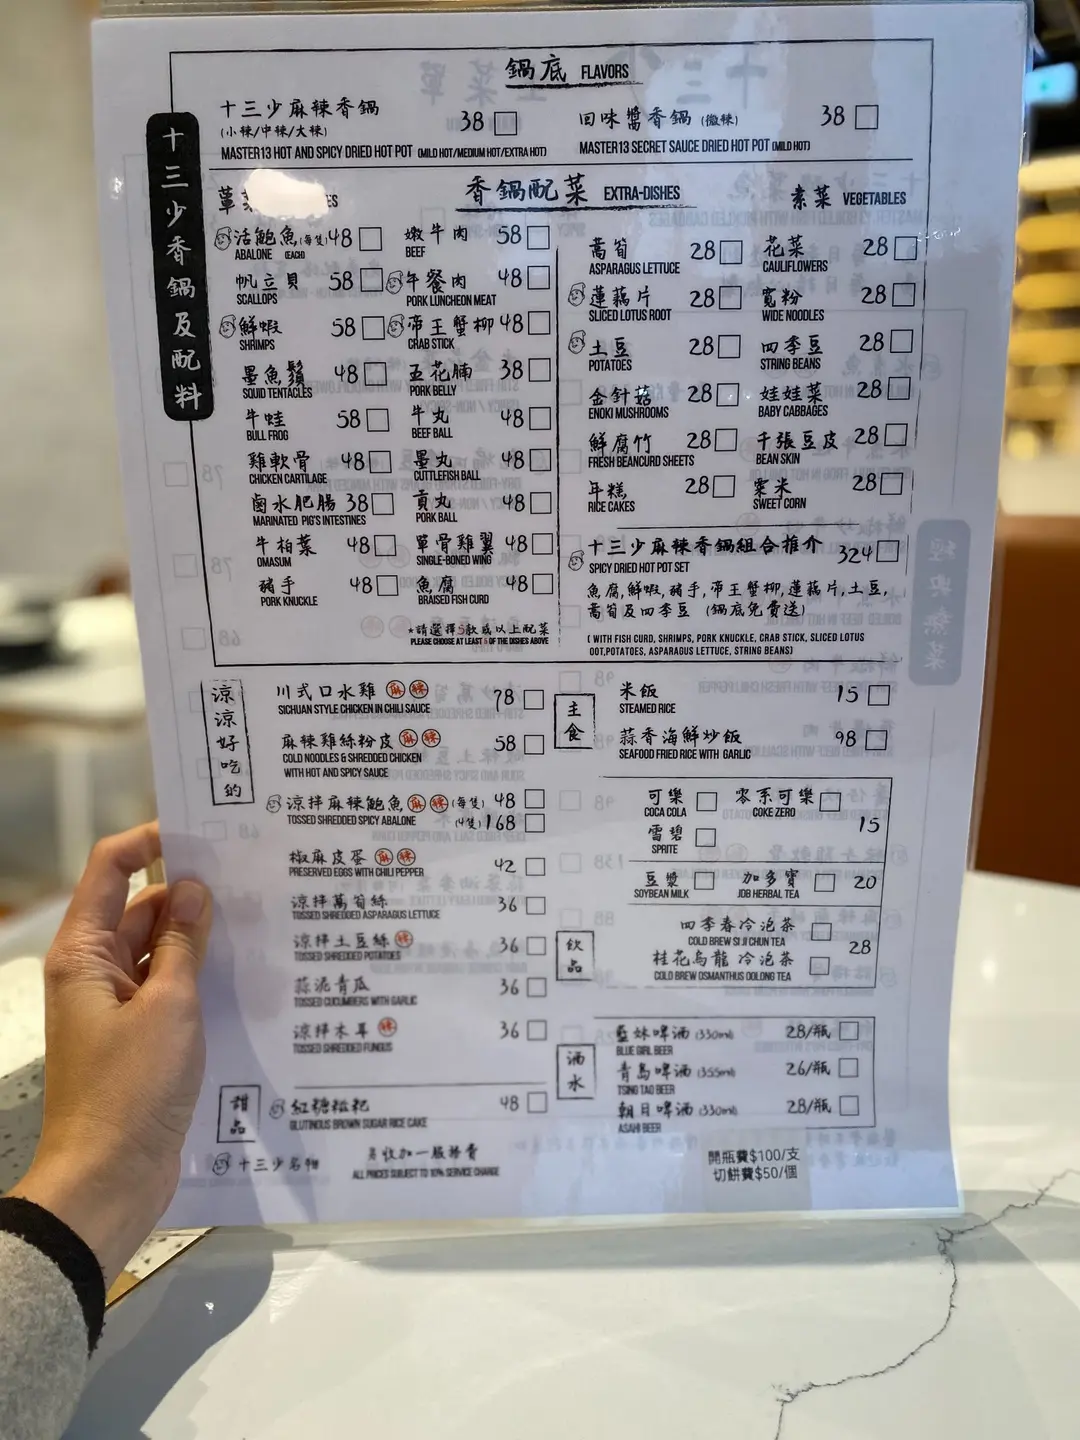 鍋底 FLAVORS
十三少麻辣香鍋 38
(小辣/中辣/大辣)
MASTER13 HOT AND SPICY DRIED HOT POT (MILD HOT/MEDIUM HOT/EXTRA HOT)
回味醬香鍋 (微辣) 38
MASTER13 SECRET SAUCE DRIED HOT POT (MILD HOT)
十三少香鍋及配料
香鍋配菜 EXTRA-DISHES
葷 ES
活鮑魚(每隻) 48
ABALONE (EACH)
帆立貝 58
SCALLOPS
鮮蝦 58
SHRIMPS
墨魚鬚 48
SQUID TENTACLES
牛蛙 58
BULL FROG
雞軟骨 48
CHICKEN CARTILAGE
鹵水肥腸 38
MARINATED PIG'S INTESTINES
牛柏葉 48
OMASUM
豬手 48
PORK KNUCKLE
嫩牛肉 58
BEEF
午餐肉 48
PORK LUNCHEON MEAT
帝王蟹柳 48
CRAB STICK
五花腩 38
PORK BELLY
牛丸 48
BEEF BALL
墨丸 48
CUTTLEFISH BALL
貢丸 48
PORK BALL
單骨雞翼 48
SINGLE-BONED WING
魚腐 48
BRAISED FISH CURD
*請選擇5款或以上配菜
PLEASE CHOOSE AT LEAST 5 OF THE DISHES ABOVE
素菜 VEGETABLES
萵筍 28
ASPARAGUS LETTUCE
蓮藕片 28
SLICED LOTUS ROOT
土豆 28
POTATOES
金針菇 28
ENOKI MUSHROOMS
鮮腐竹 28
FRESH BEANCURD SHEETS
年糕 28
RICE CAKES
花菜 28
CAULIFLOWERS
寬粉 28
WIDE NOODLES
四季豆 28
STRING BEANS
娃娃菜 28
BABY CABBAGES
千張豆皮 28
BEAN SKIN
粟米 28
SWEET CORN
十三少麻辣香鍋組合推介 324
SPICY DRIED HOT POT SET
魚腐,鮮蝦,豬手,帝王蟹柳,蓮藕片,土豆,
萵筍及四季豆 (鍋底免費送)
( WITH FISH CURD, SHRIMPS, PORK KNUCKLE, CRAB STICK, SLICED LOTUS
OOT,POTATOES, ASPARAGUS LETTUCE, STRING BEANS)
涼涼好吃的
川式口水雞 麻 辣 78
SICHUAN STYLE CHICKEN IN CHILI SAUCE
麻辣雞絲粉皮 麻 辣 58
COLD NOODLES & SHREDDED CHICKEN
WITH HOT AND SPICY SAUCE
涼拌麻辣鮑魚 麻 辣 (每隻) 48
TOSSED SHREDDED SPICY ABALONE (4隻) 168
椒麻皮蛋 麻 辣 42
PRESERVED EGGS WITH CHILI PEPPER
涼拌萵筍絲 36
TOSSED SHREDDED ASPARAGUS LETTUCE
涼拌土豆絲 辣 36
TOSSED SHREDDED POTATOES
蒜泥青瓜 36
TOSSED CUCUMBERS WITH GARLIC
涼拌木耳 辣 36
TOSSED SHREDDED FUNGUS
甜品
紅糖糍粑 48
GLUTINOUS BROWN SUGAR RICE CAKE
主食
米飯 15
STEAMED RICE
蒜香海鮮炒飯 98
SEAFOOD FRIED RICE WITH GARLIC
飲品
可樂 零系可樂
COCA COLA COKE ZERO
雪碧 15
SPRITE
豆漿 加多寶 20
SOYBEAN MILK JDB HERBAL TEA
四季春冷泡茶
COLD BREW SI JI CHUN TEA
28
桂花烏龍 冷泡茶
COLD BREW OSMANTHUS OOLONG TEA
酒水
藍妹啤酒 (330ml) 28/瓶
BLUE GIRL BEER
青島啤酒 (355ml) 26/瓶
TSING TAO BEER
朝日啤酒 (330ml) 28/瓶
ASAHI BEER
十三少名柑
另收加一服務費
ALL PRICES SUBJECT TO 10% SERVICE CHARGE
開瓶費$100/支
切餅費$50/個